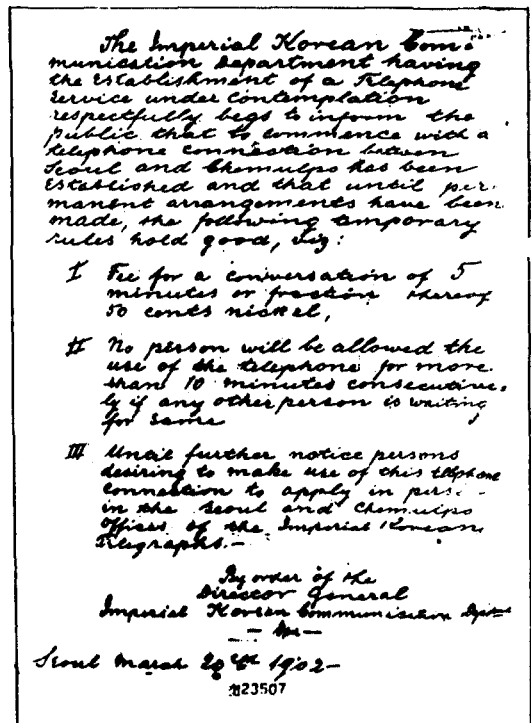 The Imperial Korean Com-
munication Department having
the Establishment of a Telephone
Service under contemplation
respectfully begs to inform the
public that to commence with a
telephone connection between
Seoul and Chemulpo has been
Established and that until per-
manent arrangements have been
made, the following temporary
rules hold good, viz:
I Fee for a conversation of 5
minutes or fraction thereof
50 cents nickel,
II No person will be allowed the
use of the telephone for more
than 10 minutes consecutive-
ly if any other person is waiting
for same
III Until further notice persons
desiring to make use of this telephone
connection to apply in
in the Seoul and Chemulpo
Offices of the Imperial Korean
Telegraphs.—
By order of the
Director General
Imperial Korean Communication Dept
Seoul March 20th 1902—
23507